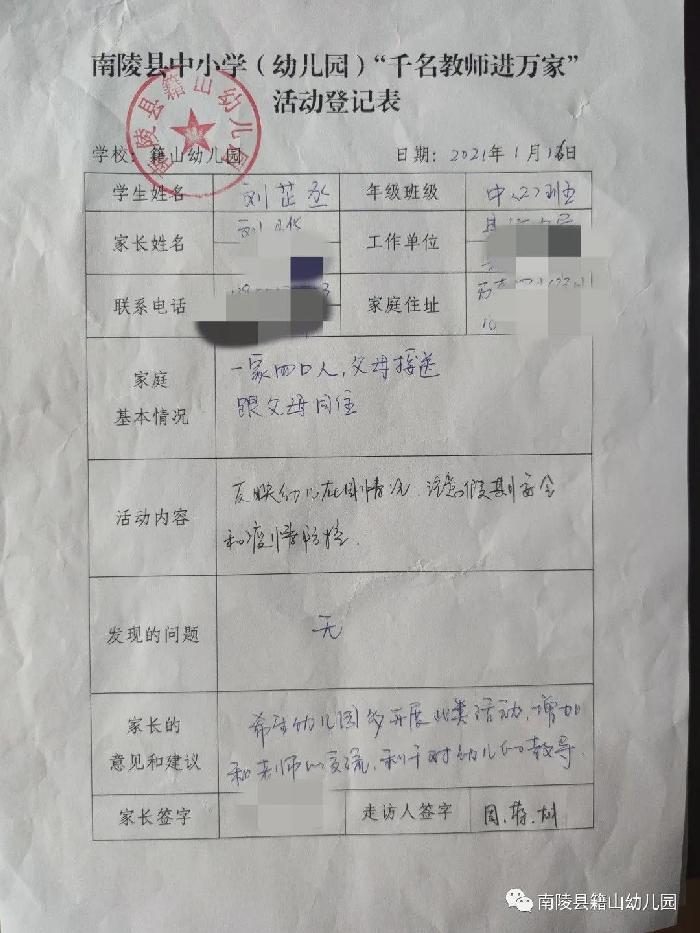 南陵县中小学（幼儿园）“千名教师进万家”
活动登记表
南陵县籍山幼儿园
学校：籍山幼儿园 日期：2021年1月16日
学生姓名 刘芷丞 年级班级 中（2）班
家长姓名 刘 工作单位
联系电话 家庭住址
家庭
基本情况
一家四口人，父母接送
跟父母同住
活动内容
反映幼儿在园情况，注意假期安全
和疫情防控.
发现的问题 无
家长的
意见和建议
希望幼儿园多开展此类活动，增加
和老师的交流，利于对幼儿的教导.
家长签字 走访人签字 周.蒋.
南陵县籍山幼儿园